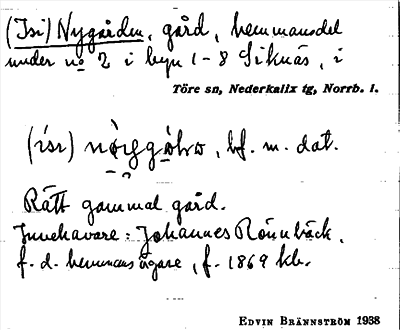 (Isi) Nygården, gård, hemmansdel
under no 2 i byn 1-8 Siknäs, i
Töre sn, Nederkalix tg, Norrb. l.
(isi) bf. m. dat.
Rätt gammal gård.
Innehavare: Johannes Rönnbäck,
f. d. hemmansägare, f. 1869 kb.
EDVIN BRÄNNSTRÖM 1938